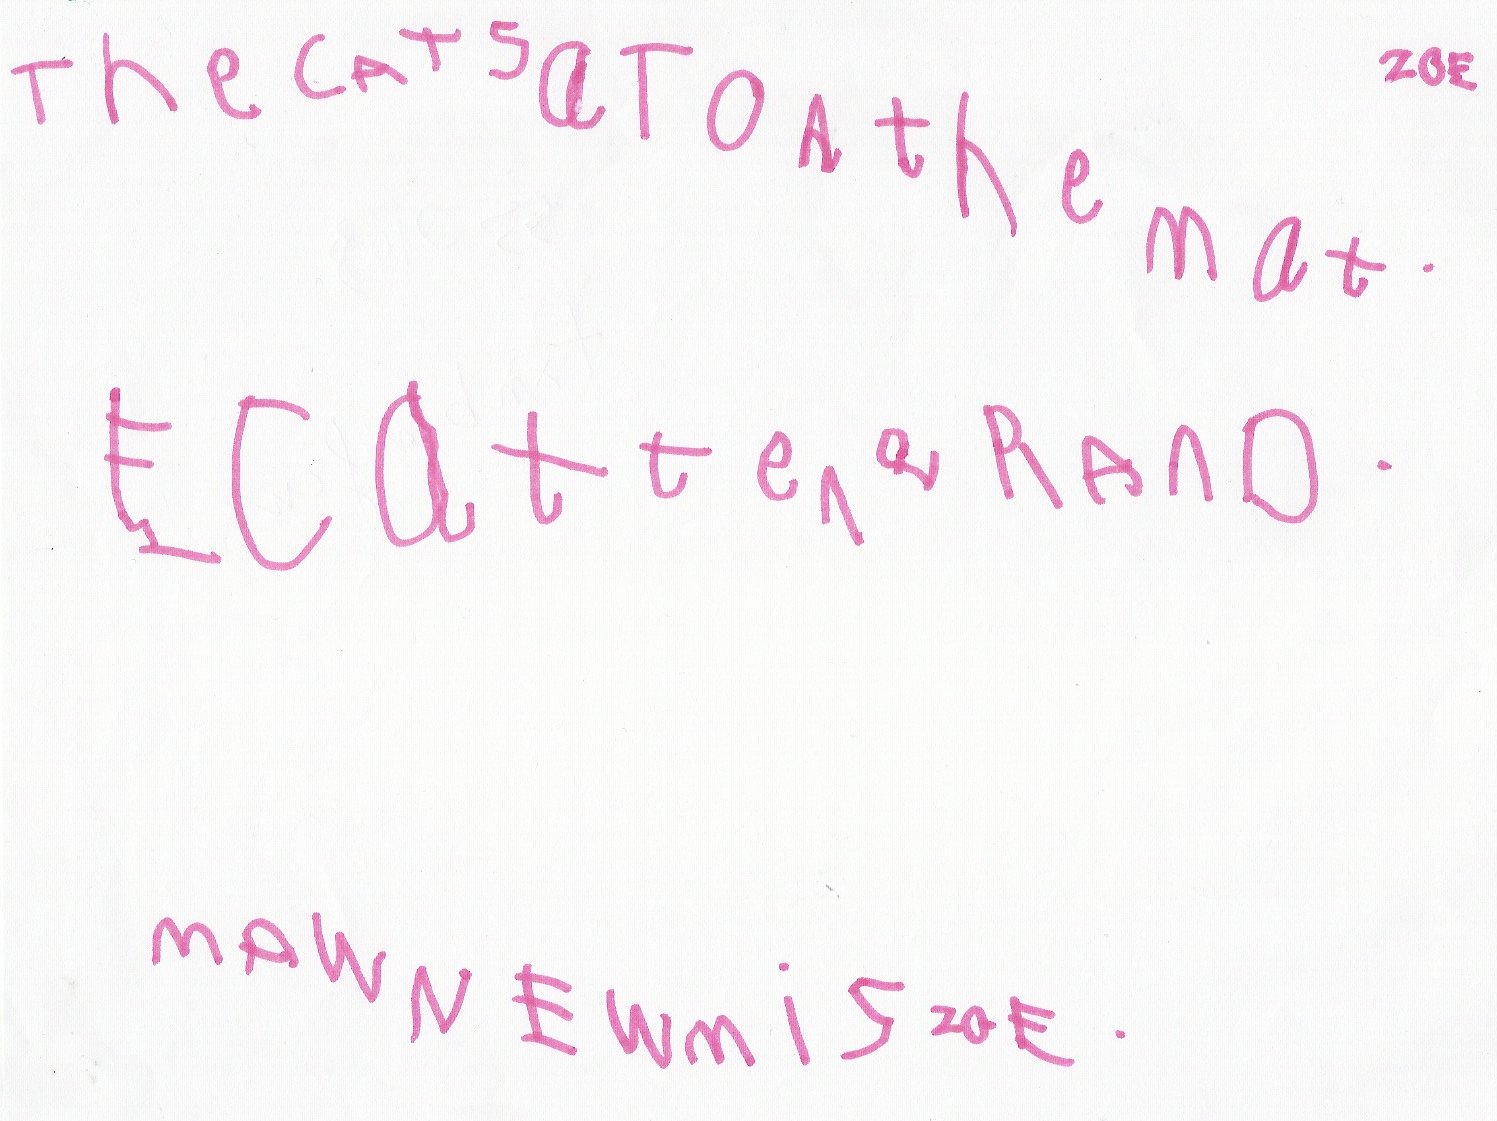 The CAT SaT OA the mat. ZOE
ECattenaRAnD.
mAWNEWmiSZOE.